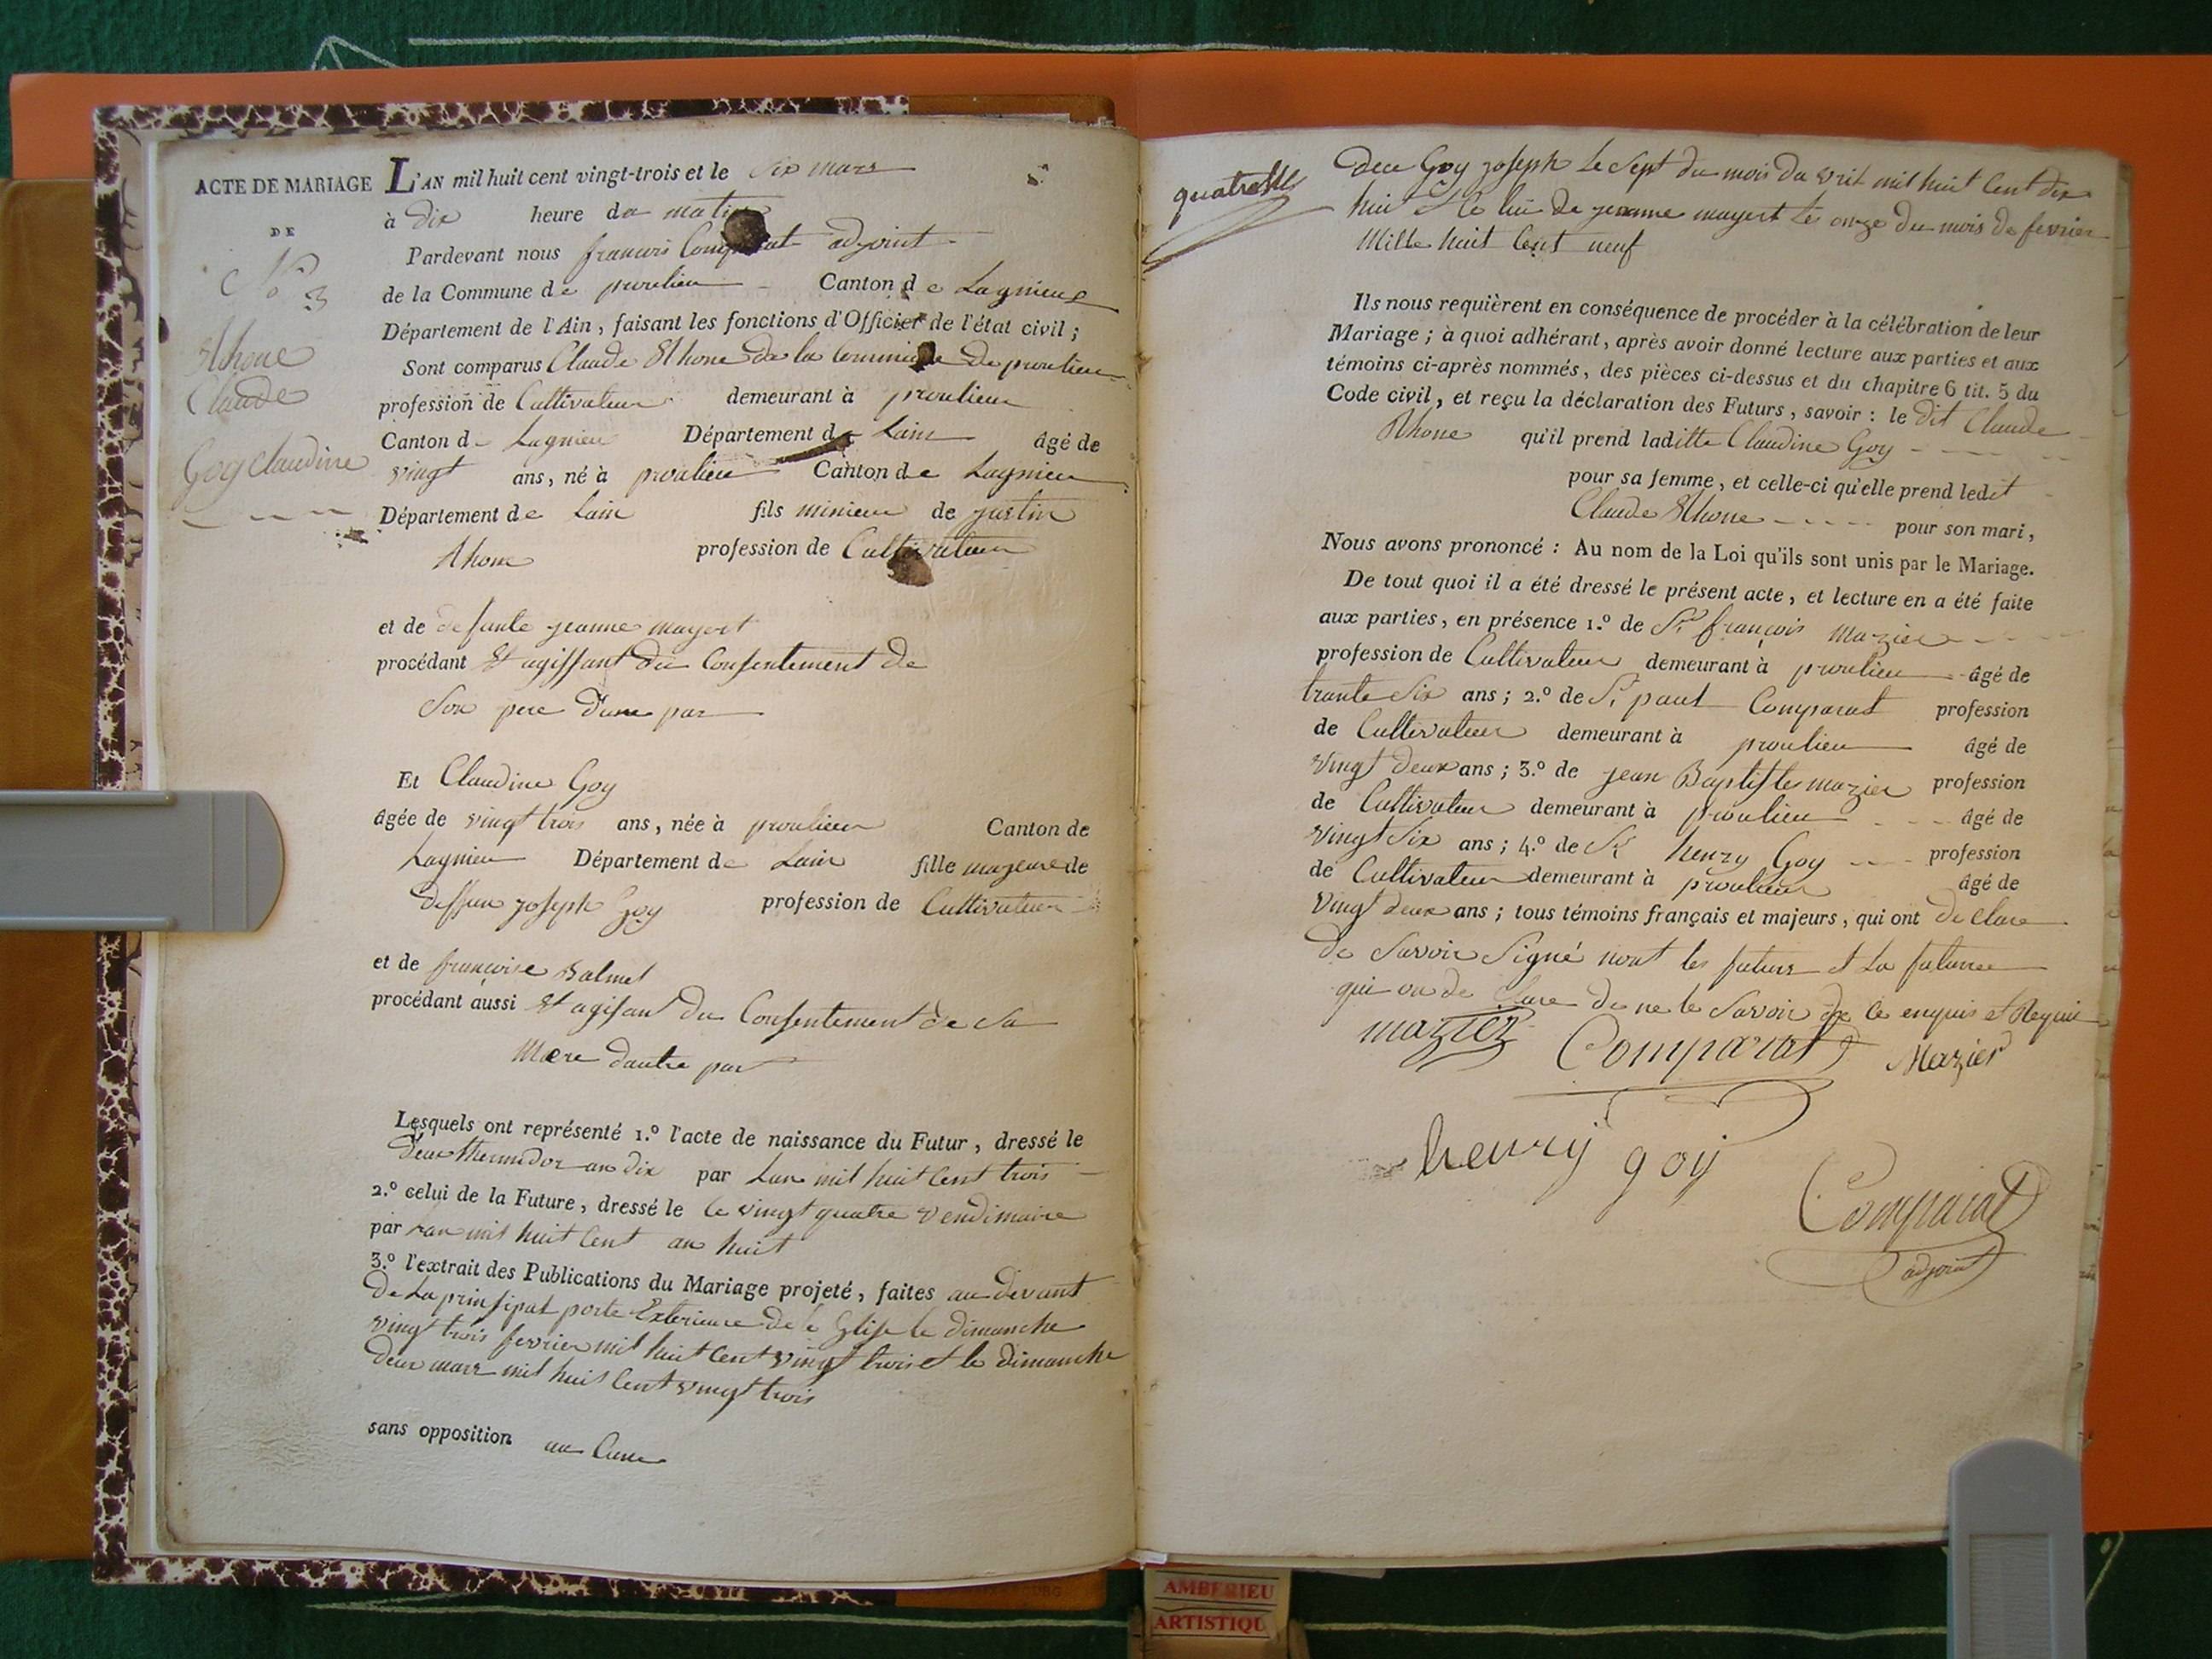 ACTE DE MARIAGE
DE
N° 3
Rhone
Claude
Goy Claudine
L'AN mil huit cent vingt-trois et le six mars
à dix heure du matin
Pardevant nous francois Comparat adjoint
de la Commune de proulieu Canton de Lagnieux
Département de l'Ain, faisant les fonctions d'Officier de l'état civil;
Sont comparus Claude Rhone de la Commune de proulieu
profession de Cultivateur demeurant à proulieu
Canton de Lagnieu Département de Lain âgé de
vingt ans, né à proulieu Canton de Lagnieu
Département de Lain fils minieur de justin
Rhone profession de Cultivateur
et de defunte jeanne mayert
procédant Et agissant du Consentement de
Son pere dune par
Et Claudine Goy
âgée de vingt trois ans, née à proulieu Canton de
Lagnieu Département de Lain fille majeure de
deffun joseph goy profession de Cultivateur
et de françoise Balmet
procédant aussi Et agisant du Consentement de Sa
Mere dautre par
Lesquels ont représenté 1.° l'acte de naissance du Futur, dressé le
deux thermidor an dix par Lan mil huit Cent trois
2.° celui de la Future, dressé le le vingt quatre vendimaire
par Lan mil huit Cent an huit
3.° l'extrait des Publications du Mariage projeté, faites au devant
de La prinsipal porte Exterieure de le Eglise le dimanche
vingt trois fevrier mil huit Cent vingt trois et le dimanche
deux mars mil huit Cent vingt trois
sans opposition au Cune
quatre
dece Goy joseph Le Sept du mois da vril mil huit Cent dix
huit et Ce lui de jeanne mayert Le onze du mois de fevrier
Mille huit Cent neuf
Ils nous requièrent en conséquence de procéder à la célébration de leur
Mariage; à quoi adhérant, après avoir donné lecture aux parties et aux
témoins ci-après nommés, des pièces ci-dessus et du chapitre 6 tit. 5 du
Code civil, et reçu la déclaration des Futurs, savoir: le dit Claude
Rhone qu'il prend laditte Claudine Goy
pour sa femme, et celle-ci qu'elle prend ledit
Claude Rhone pour son mari,
Nous avons prononcé: Au nom de la Loi qu'ils sont unis par le Mariage.
De tout quoi il a été dressé le présent acte, et lecture en a été faite
aux parties, en présence 1.° de Sr françois Mazier
profession de Cultivateur demeurant à proulieu âgé de
trante Six ans; 2.° de Sr paul Comparat profession
de Cultivateur demeurant à proulieu âgé de
vingt deux ans; 3.° de jean Baptiste mazier profession
de Cultivateur demeurant à proulieu âgé de
vingt Six ans; 4.° de Sr henry Goy profession
de Cultivateur demeurant à proulieu âgé de
vingt deux ans; tous témoins français et majeurs, qui ont de Clare
de Savoir Signé nont les futurs et La future
qui on de Clare de ne le Savoir de Ce enquis et Requie
mazier Comparat Mazier
henry goy
Comparat
adjoint
AMBERIEU
ARTISTIQU